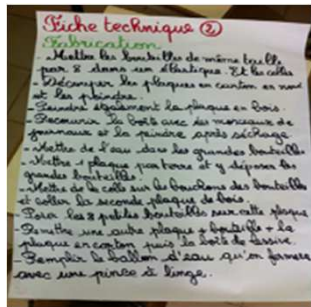 Fiche technique ②
Fabrication
- Mettre les bouteilles de même taille
par 8 dans un élastique. Et les coller
- Découper les plaques en carton en rond
et les peindre.
- Peindre également la plaque en bois.
- Recouvrir la boîte avec des morceaux de
journaux et la peindre après séchage.
- Mettre de l'eau dans les grandes bouteilles
- Mettre 1 plaque par terre et y déposer les
grandes bouteilles.
- Mettre de la colle sur les bouchons des bouteilles
et coller la seconde plaque de bois.
- Poser les 8 petites bouteilles sur cette plaque
- Remettre une autre plaque + bouteille + la
plaque en carton puis la boîte de lessive.
- Remplir le ballon d'eau qu'on fermera
avec une pince à linge.